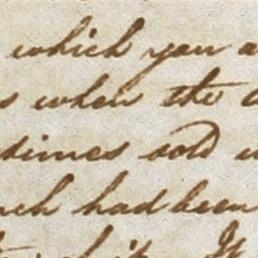 which you a
s when the
times sold
ch had been